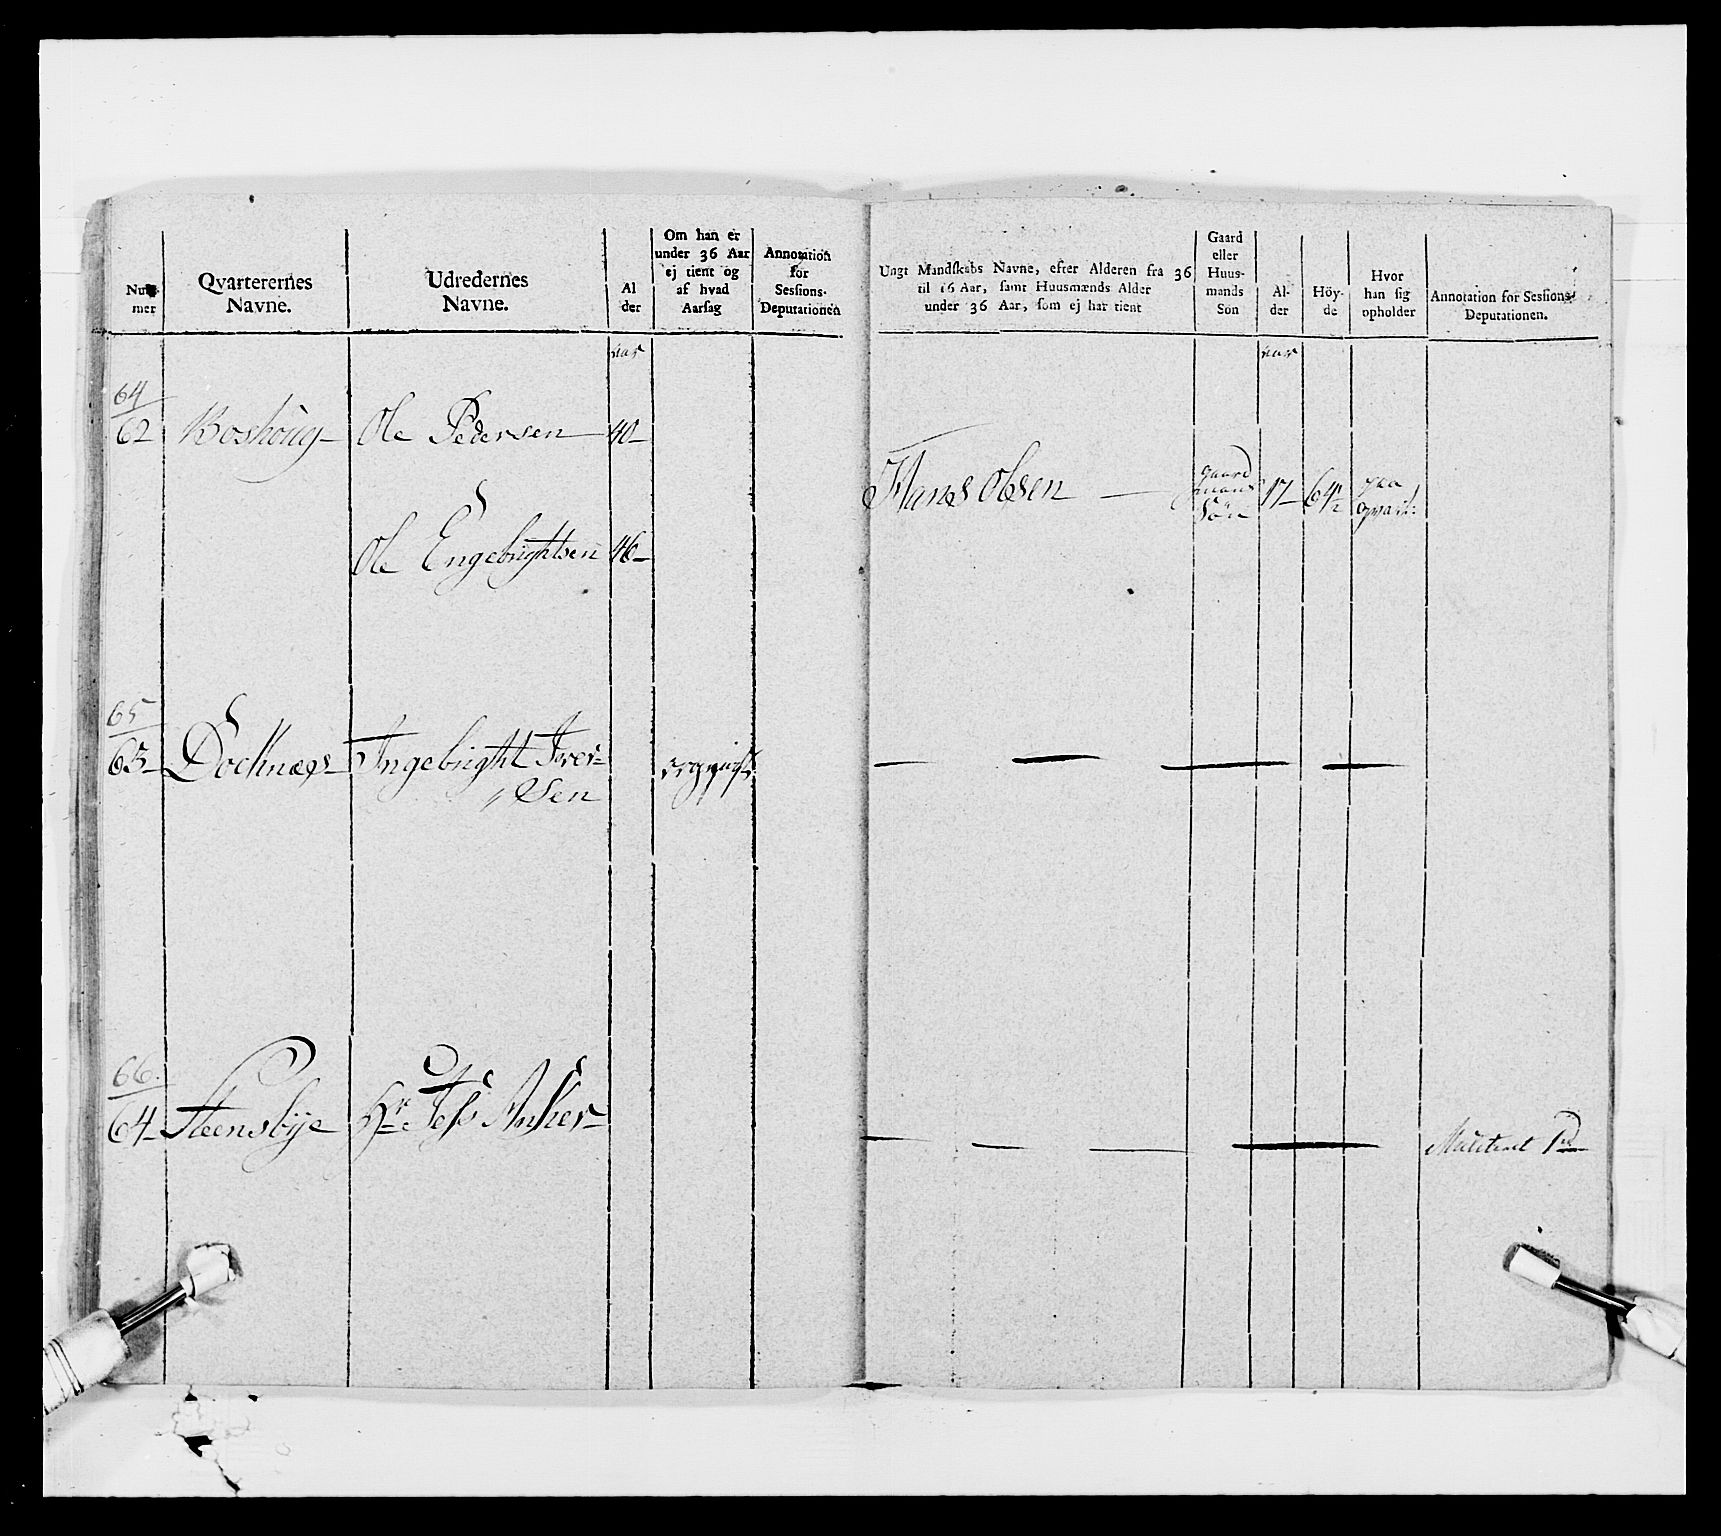 Num-
mer
Qvarterernes
Navne.
Udredernes
Navne.
Al
der
Om han er
under 36 Aar
ej tient og
af hvad
Aarsag
Annotation
for
Sessions-
Deputationen
Ungt Mandskabs Navne, efter Alderen fra 36
til 16 Aar, samt Huusmænds Alder
under 36 Aar, som ej har tient
Gaard
eller
Huus-
mands
Søn
Al-
der
Höy-
de
Hvor
han sig
opholder
Annotation for Sessions-
Deputationen.
aar
aar
64
62 Boshoug- Ole Pedersen 40-
Hans Olsen gaard mans Søn 17- 64½ paa qvart:
Ole Engebrightsen 46-
65
63- Ingebright Iver-
sen
66
64- Steensbye Hr Anker-